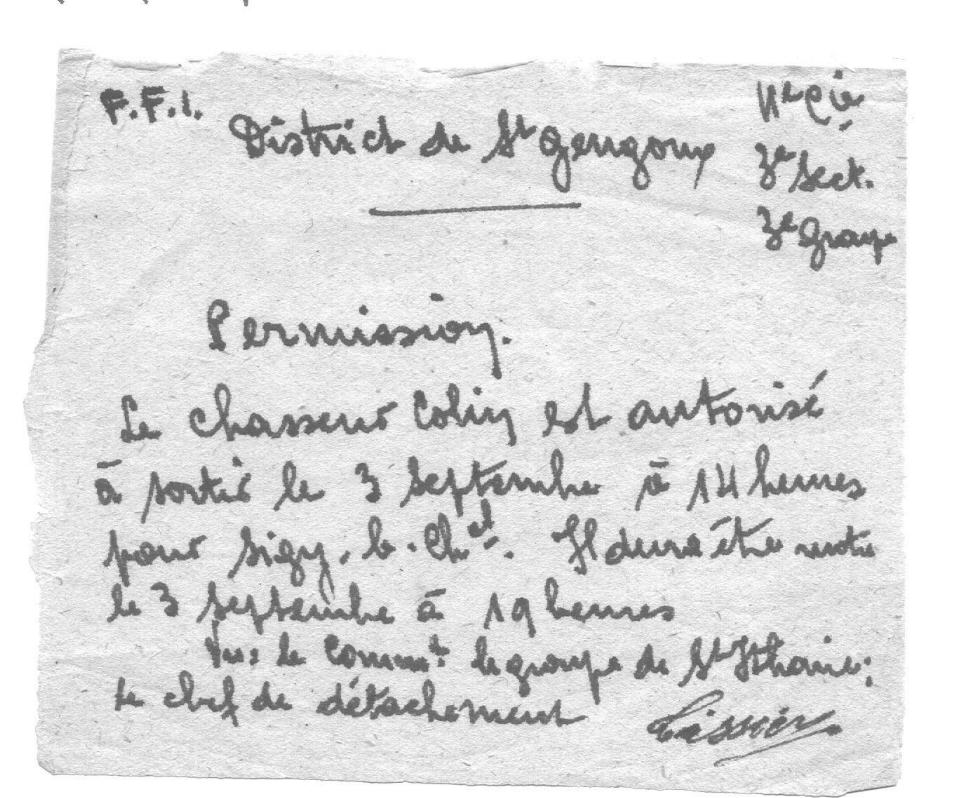 F.F.I.
District de St Gengoux
4e Cie
3e Sect.
3e Groupe
Permission.
Le chasseur Colin est autorisé
à sortir le 3 Septembre à 14 heures
pour Sigy. le. Chel. Il devra être rentré
le 3 Septembre à 19 heures
Vu: le Commt. le groupe de St Ythaire:
Le chef de détachement
Tissier